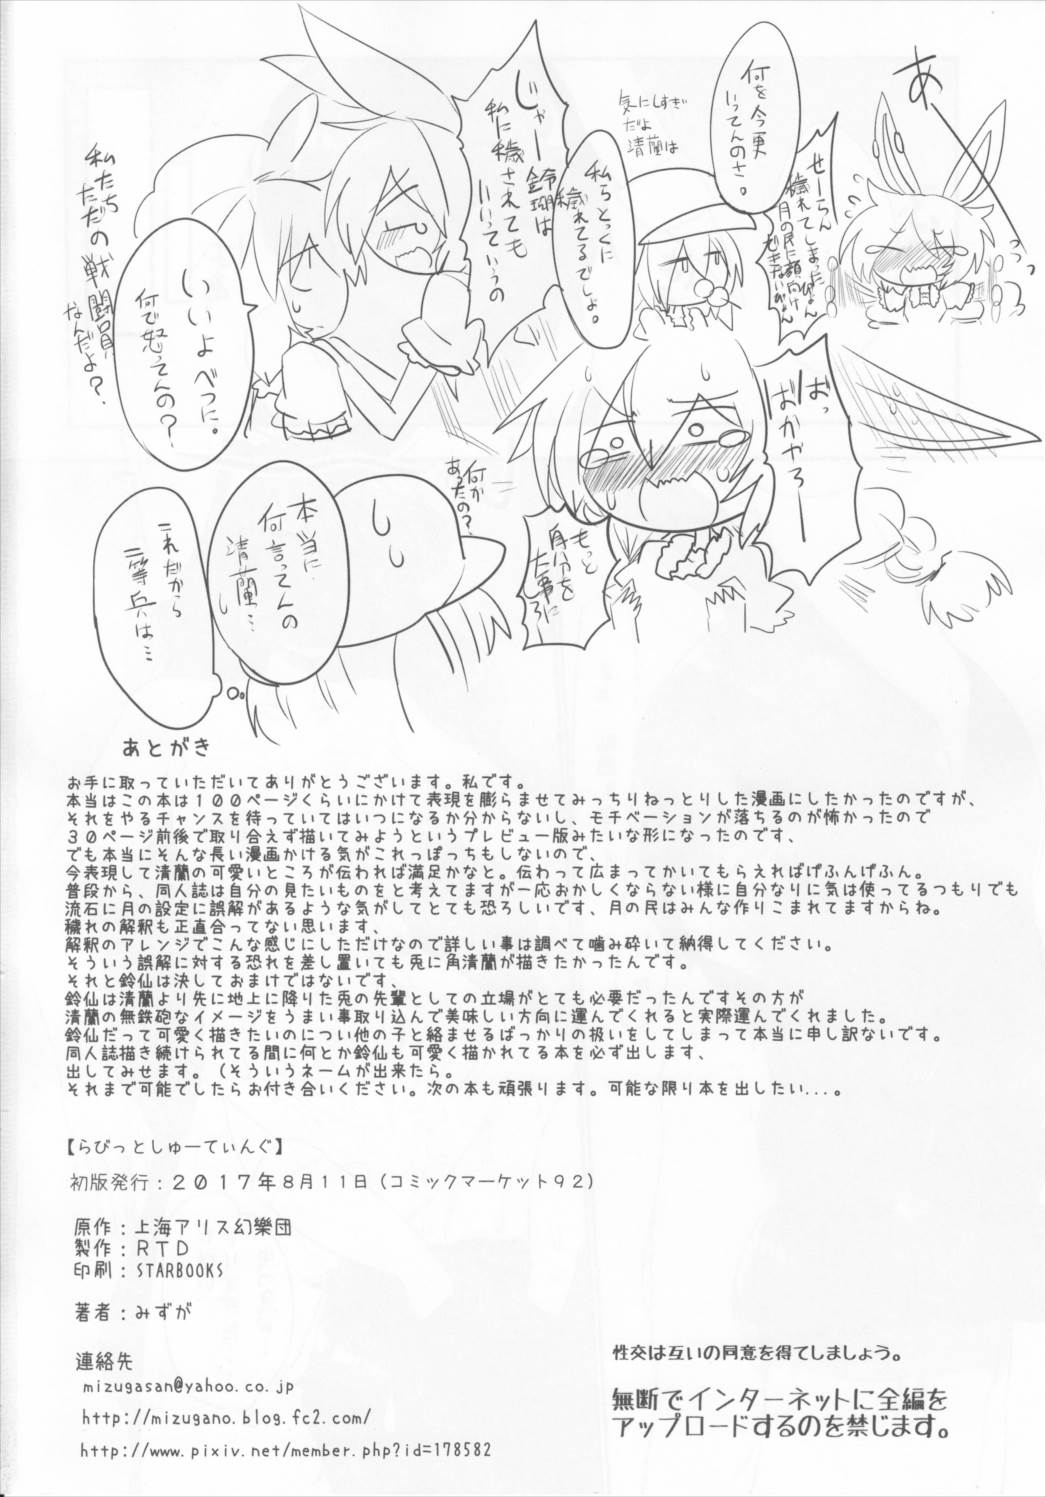 あ
せーらん
穢れてしまったぴょん
月の民に顔向け
できないぴょん
何を今更
いってんのさ。
気にしすぎ
だよ
清蘭は
私らとっくに
穢れてるでしょ。
じゃー鈴瑚は
私に穢されても
いいっていうの
いいよべつに。
何で怒ってんの?
私たち
ただの戦闘員
なんだよ?
ばっ
ばかやろーー
もっと
自分を
大事にしろ
何が
あったの?
本当に
何言ってんの
清蘭…
これだから
二等兵は…
あとがき
お手に取っていただいてありがとうございます。私です。
本当はこの本は100ページくらいにかけて表現を膨らませてみっちりねっとりした漫画にしたかったのですが、
それをやるチャンスを待っていてはいつになるか分からないし、モチベーションが落ちるのが怖かったので
30ページ前後で取り合えず描いてみようというプレビュー版みたいな形になったのです、
でも本当にそんな長い漫画かける気がこれっぽっちもしないので、
今表現して清蘭の可愛いところが伝われば満足かなと。伝わって広まってかいてもらえればげふんげふん。
普段から、同人誌は自分の見たいものをと考えてますが一応おかしくならない様に自分なりに気は使ってるつもりでも
流石に月の設定に誤解があるような気がしてとても恐ろしいです、月の民はみんな作りこまれてますからね。
穢れの解釈も正直合ってない思います、
解釈のアレンジでこんな感じにしただけなので詳しい事は調べて噛み砕いて納得してください。
そういう誤解に対する恐れを差し置いても兎に角清蘭が描きたかったんです。
それと鈴仙は決しておまけではないです、
鈴仙は清蘭より先に地上に降りた兎の先輩としての立場がとても必要だったんですその方が
清蘭の無鉄砲なイメージをうまい事取り込んで美味しい方向に運んでくれると実際運んでくれました。
鈴仙だって可愛く描きたいのについ他の子と絡ませるばっかりの扱いをしてしまって本当に申し訳ないです。
同人誌描き続けられてる間に何とか鈴仙も可愛く描かれてる本を必ず出します、
出してみせます。(そういうネームが出来たら。
それまで可能でしたらお付き合いください。次の本も頑張ります。可能な限り本を出したい...。
【らびっとしゅーてぃんぐ】
初版発行:2017年8月11日(コミックマーケット92)
原作:上海アリス幻樂団
製作:RTD
印刷:STARBOOKS
著者:みずが
連絡先
mizugasan@yahoo.co.jp
http://mizugano.blog.fc2.com/
http://www.pixiv.net/member.php?id=178582
性交は互いの同意を得てしましょう。
無断でインターネットに全編を
アップロードするのを禁じます。